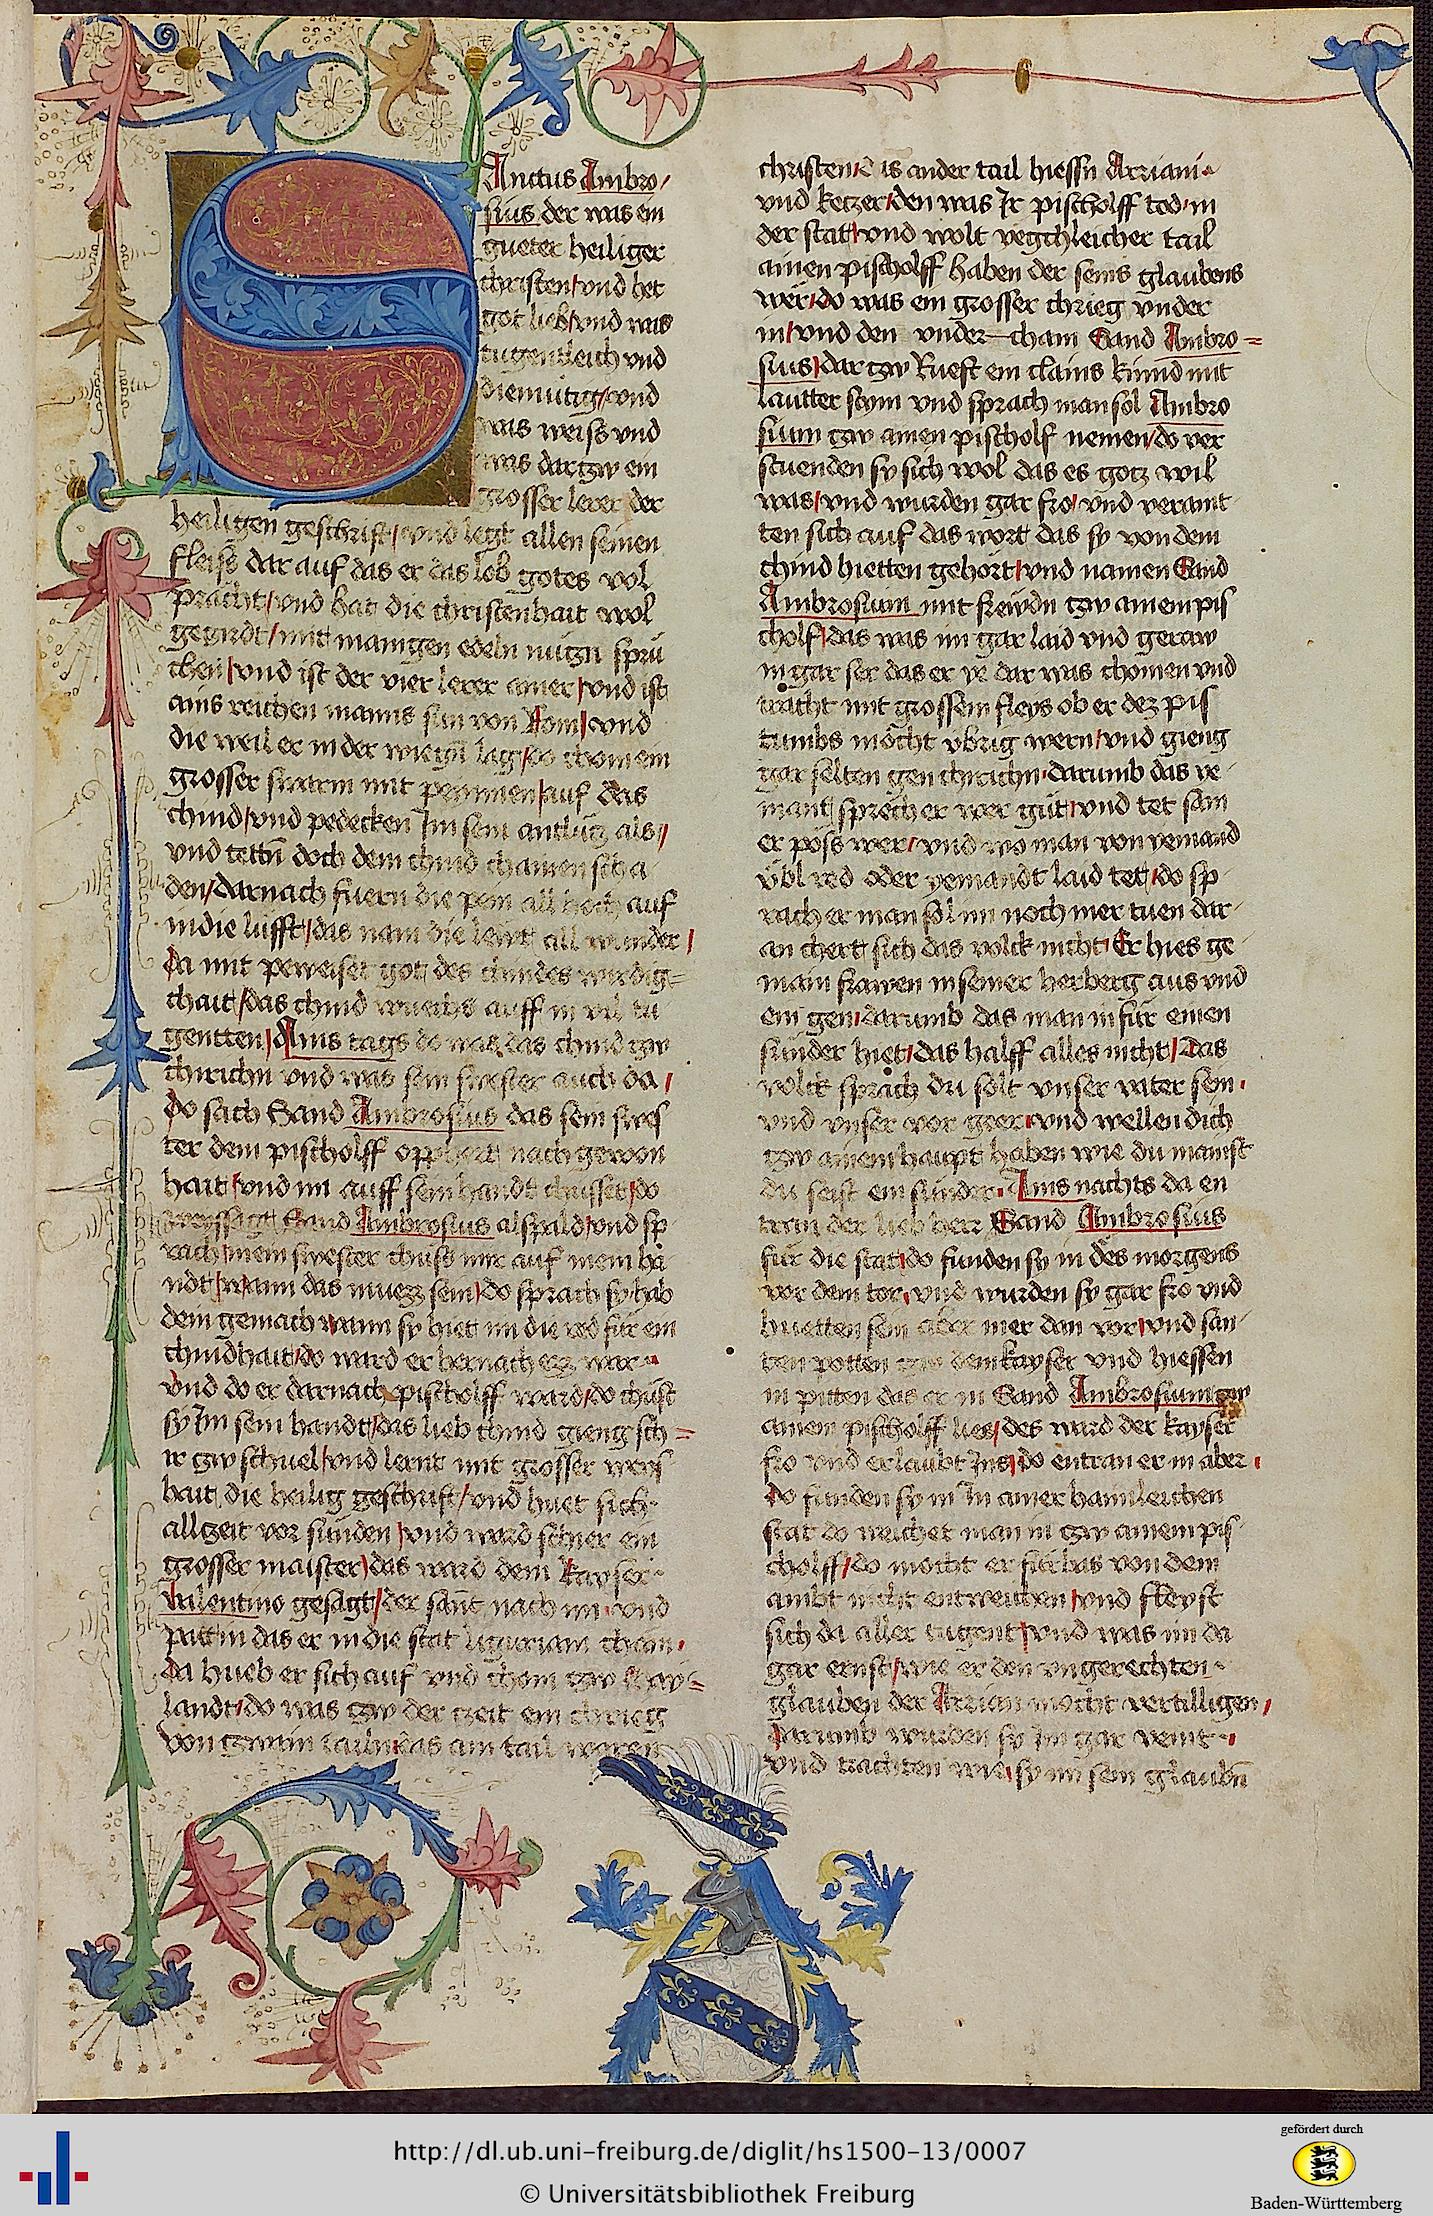 Sanctus Ambro/
sius der was ein
gueter heiliger
christen/ vnd het
got lieb/ vnd was
tugentleich vnd
diemutig/ vnd
was weiss vnd
was dartzw ein
grosser lerer der
heiligen geschrift/ vnd legt allen seinen
fleiss dar auf das er das lob gotes vol
pracht/ vnd hat die christenhait wol
getzirdt/ mit manigen edeln nützn sprü
chen/ vnd ist der vier lerer ainer/ vnd ist
ains reichen manns sun von Rom/ vnd
die weil er in der wiegn lag/ do chom ein
grosser swarm mit peynnen/ auf das
chind/ vnd pedecken Im sein antlütz als/
vnd tettn doch dem chind chainen scha
den/ darnach fuern die pein all hoch auf
in die lüfft/ das nam die lewt all wunder/
Da mit peweiset got des chindes wirdig=
chait/ das chind wuechs auff in vil tu
gentten/ Ains tags do was das chind tzw
chirichn vnd was sein swester auch da/
do sach Sand Ambrosius das sein swes
ter dem pischolff opphert nach gewon
hait/ vnd im auff sein handt chusset/ do
weyssagt Sand Ambrosius alspald/ vnd sp
rach/ mein swester chuss mir auf mein ha
ndt/ wann das muezz sein/ do sprach sy hab
dein gemach wann sy hiet im die red für ein
chindhait/ do ward er hernach ezz war
Vnd do er darnach pischolff ward/ do chust
sy Im sein handt/ das lieb chind gieng sch=
ir tzw schuel/ vnd lernt mit grosser weys
hait die heilig geschrift/ vnd huet sich
allzeit vor sünden/ vnd ward schier ein
grosser maister/ das ward dem kayser
Valentino gesagt/ der sant nach im vnd
patt in das er in die stat liguriam cham
da hueb er sich auf vnd chom tzw May=
landt/ do was tzw der tzeit ein chrieg
von tzwain tailn/ das ain tail waren
christen/ das ander tail hiessn Arriani
vnd ketzer/ den was Ir pischolff tod in
der stat/ vnd wolt yegchleicher tail
ainen pischolff haben der seins glaubens
wer/ do was ein grosser chrieg vnder
in/ vnd den vnder cham Sand Ambro=
sius/ dar tzw Rueft ein clains kinnd mit
lautter stym vnd sprach man sol Ambro
sium tzw ainen pischolf nemen/ do ver
stuenden sy sich wol das es gotz wil
was/ vnd wurden gar fro/ vnd veraint
ten sich auf das wort das sy von dem
chind hietten gehört/ vnd namen Sand
Ambrosium mit frewdn tzw ainem pis
cholf/ das was im gar laid vnd geraw
in gar ser das er ye dar was chomen vnd
tracht mit grossem fleys ob er dez pis
tumbs möcht vbrig wern/ vnd gieng
gar selten gen chirichn darumb das ye
mant sprech er wer güt/ vnd tet sam
er pöss wer/ vnd wo man von yemand
übl red oder yemandt laid tet/ do sp
rach er man sol im noch mer tuen dar
an chert sich das volck nicht/ Er hies ge
main frawen in seiner herberg aus vnd
ein gen/ darumb das man in für einen
sünder hiet/ das halff alles nicht/ Das
volck sprach du solt vnser vater sein
vnd vnser vor geer/ vnd wellen dich
tzw ainem haupt haben wie du mainst
du seist ein sünder Ains nachts da en
tran der lieb herr Sand Ambrosius
für die stat/ do funden sy in des morgens
vor dem tor/ vnd wurden sy gar fro vnd
huetten sein aber mer dan vor/ vnd san
ten potten tzw dem kayser vnd hiessen
in pitten das er in Sand Ambrosium tzw
ainem pischolff lies/ des ward der kayser
fro vnd erlaubt Ins/ do entran er in aber
do funden sy in In ainer haimleichen
stat do weichet man in tzw ainem pis
cholff/ do mocht er fürbas von dem
ambt nicht entweichen/ vnd fleyst
sich da aller tugent/ vnd was im da
gar ernst/ wie er den vngerechten
glauben der Arrian mocht vertilligen/
darumb wurden sy Im gar veint
vnd trachten wie sy im sein glaubn
http://dl.ub.uni-freiburg.de/diglit/hs1500-13/0007
© Universitätsbibliothek Freiburg
gefördert durch
Baden-Württemberg